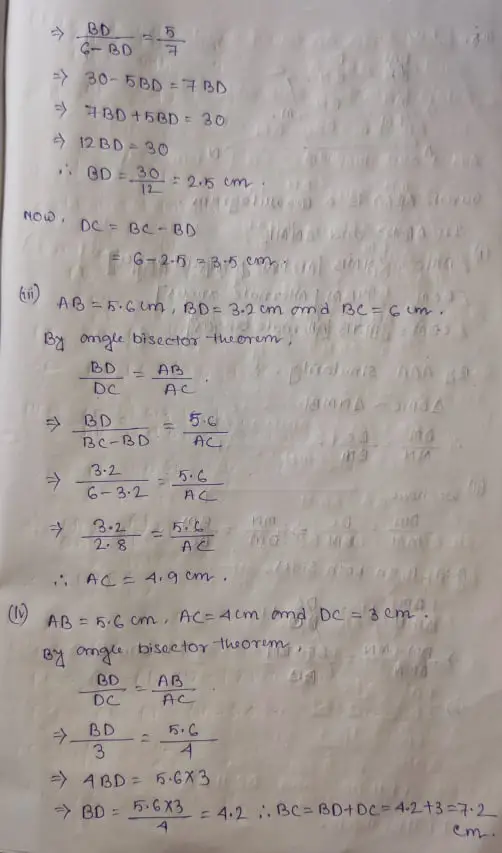 ⇒ BD/(6-BD) = 5/7
⇒ 30-5BD = 7BD
⇒ 7BD+5BD = 30
⇒ 12BD = 30
∴ BD = 30/12 = 2.5 cm.
Now, DC = BC - BD
= 6-2.5 = 3.5 cm.
(iii) AB = 5.6 cm, BD = 3.2 cm and BC = 6 cm.
By angle bisector theorem,
BD/DC = AB/AC.
⇒ BD/(BC-BD) = 5.6/AC
⇒ 3.2/(6-3.2) = 5.6/AC
⇒ 3.2/2.8 = 5.6/AC
∴ AC = 4.9 cm.
(iv) AB = 5.6 cm, AC = 4 cm and DC = 3 cm.
By angle bisector theorem,
BD/DC = AB/AC.
⇒ BD/3 = 5.6/4
⇒ 4BD = 5.6×3
⇒ BD = 5.6×3/4 = 4.2 ∴ BC = BD+DC = 4.2+3 = 7.2
cm.